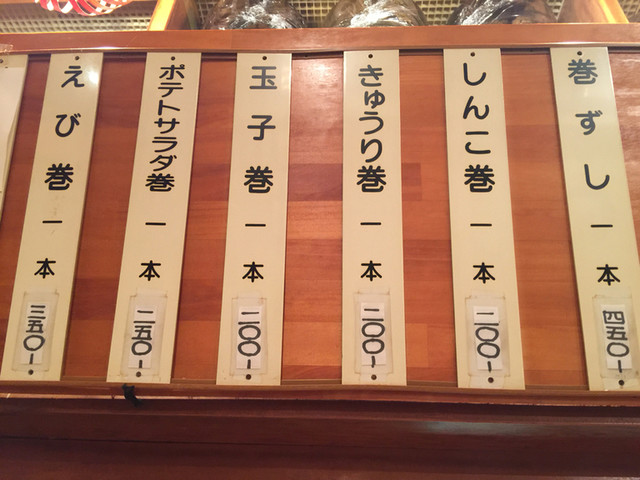 巻ずし一本
四五〇-
しんこ巻一本
二〇〇-
きゅうり巻一本
二〇〇-
玉子巻一本
二〇〇-
ポテトサラダ巻一本
二五〇-
えび巻一本
三五〇-